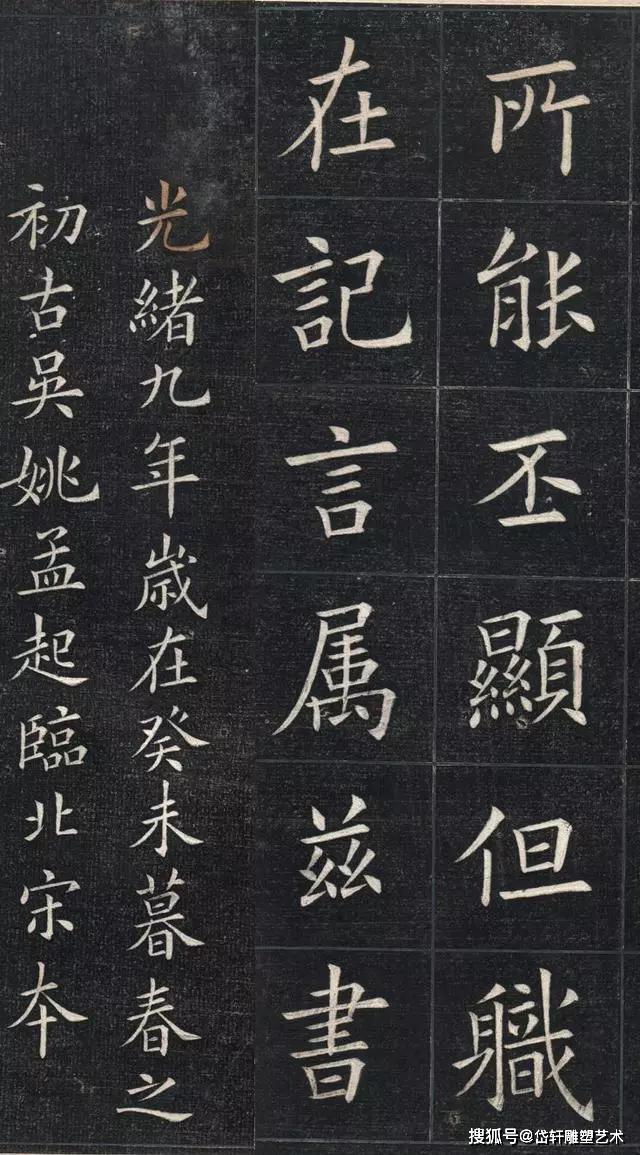 所能丕顯但職
在記言属茲書
光緒九年歲在癸未暮春之
初古吳姚孟起臨北宋本
搜狐号@岱轩雕塑艺术